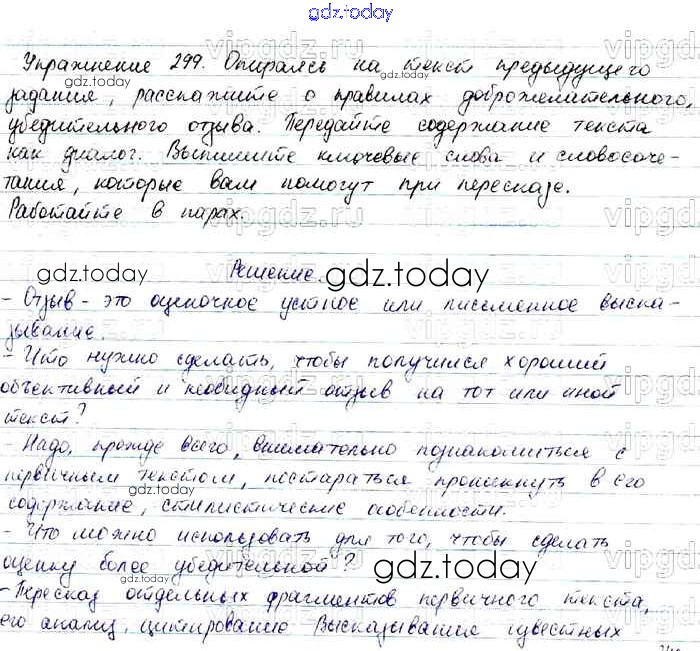 gdz.today
Упражнение 299. Опираясь на текст предыдущего
задания, расскажите о правилах доброжелательного,
убедительного отзыва. Передайте содержание текста
как диалог. Выпишите ключевые слова и словосоче-
тания, которые вам помогут при пересказе.
Работайте в парах.
Решение.
- Отзыв - это оценочное устное или письменное выска-
зывание.
- Что нужно сделать, чтобы получился хороший
объективный и необидный отзыв на тот или иной
текст?
- Надо, прежде всего, внимательно познакомиться с
первичным текстом, постараться проникнуть в его
содержание, стилистические особенности.
- Что можно использовать для того, чтобы сделать
оценку более убедительной?
- Пересказ отдельных фрагментов первичного текста,
его анализ, цитирование высказывания известных